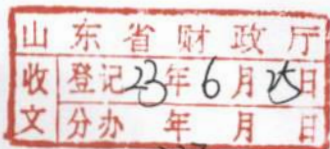 山东省财政厅
收文 登记23年6月25日
分办 年 月 日